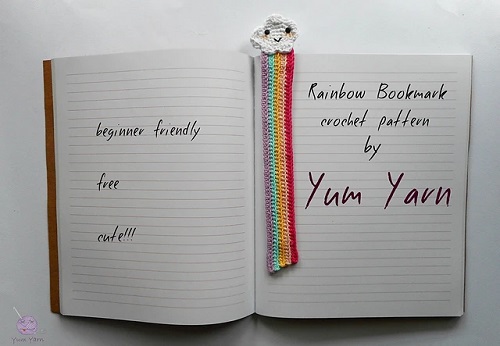 beginner friendly
free
cute!!!
Rainbow Bookmark
crochet pattern
by
Yum Yarn
Yum Yarn